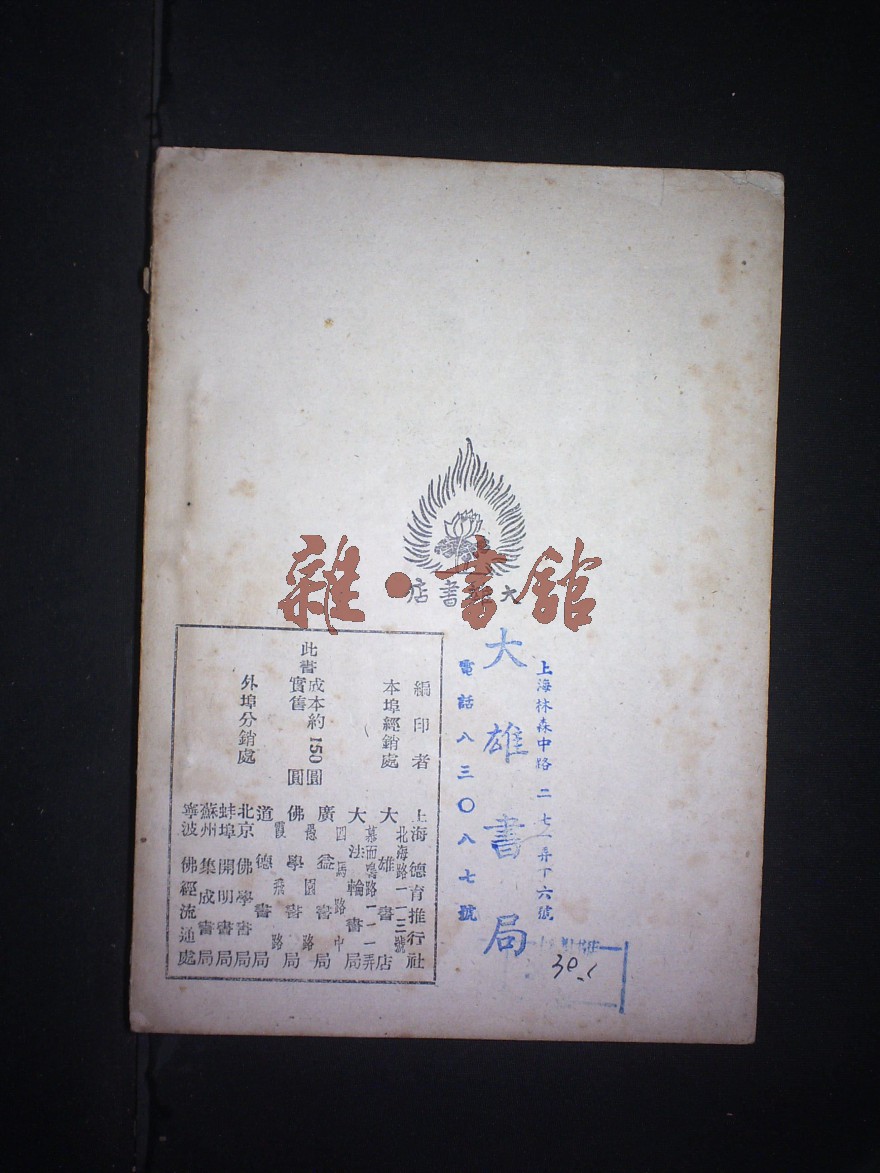 雜·書館
大雄書店
上海林森中路二七一弄下六號
大雄書局
電話八三〇八七號
編印者 上海德育推行社
本埠經銷處
大雄書店 北海路一一三號
大法輪書局 慕爾鳴路一一一弄
廣益書局 四馬路中
佛學書局 愚園路
道德書局 霞飛路
此書成本約150圓
實售 圓
外埠分銷處
北京佛學書局
蚌埠開明書局
蘇州集成書局
寧波佛經流通處
30